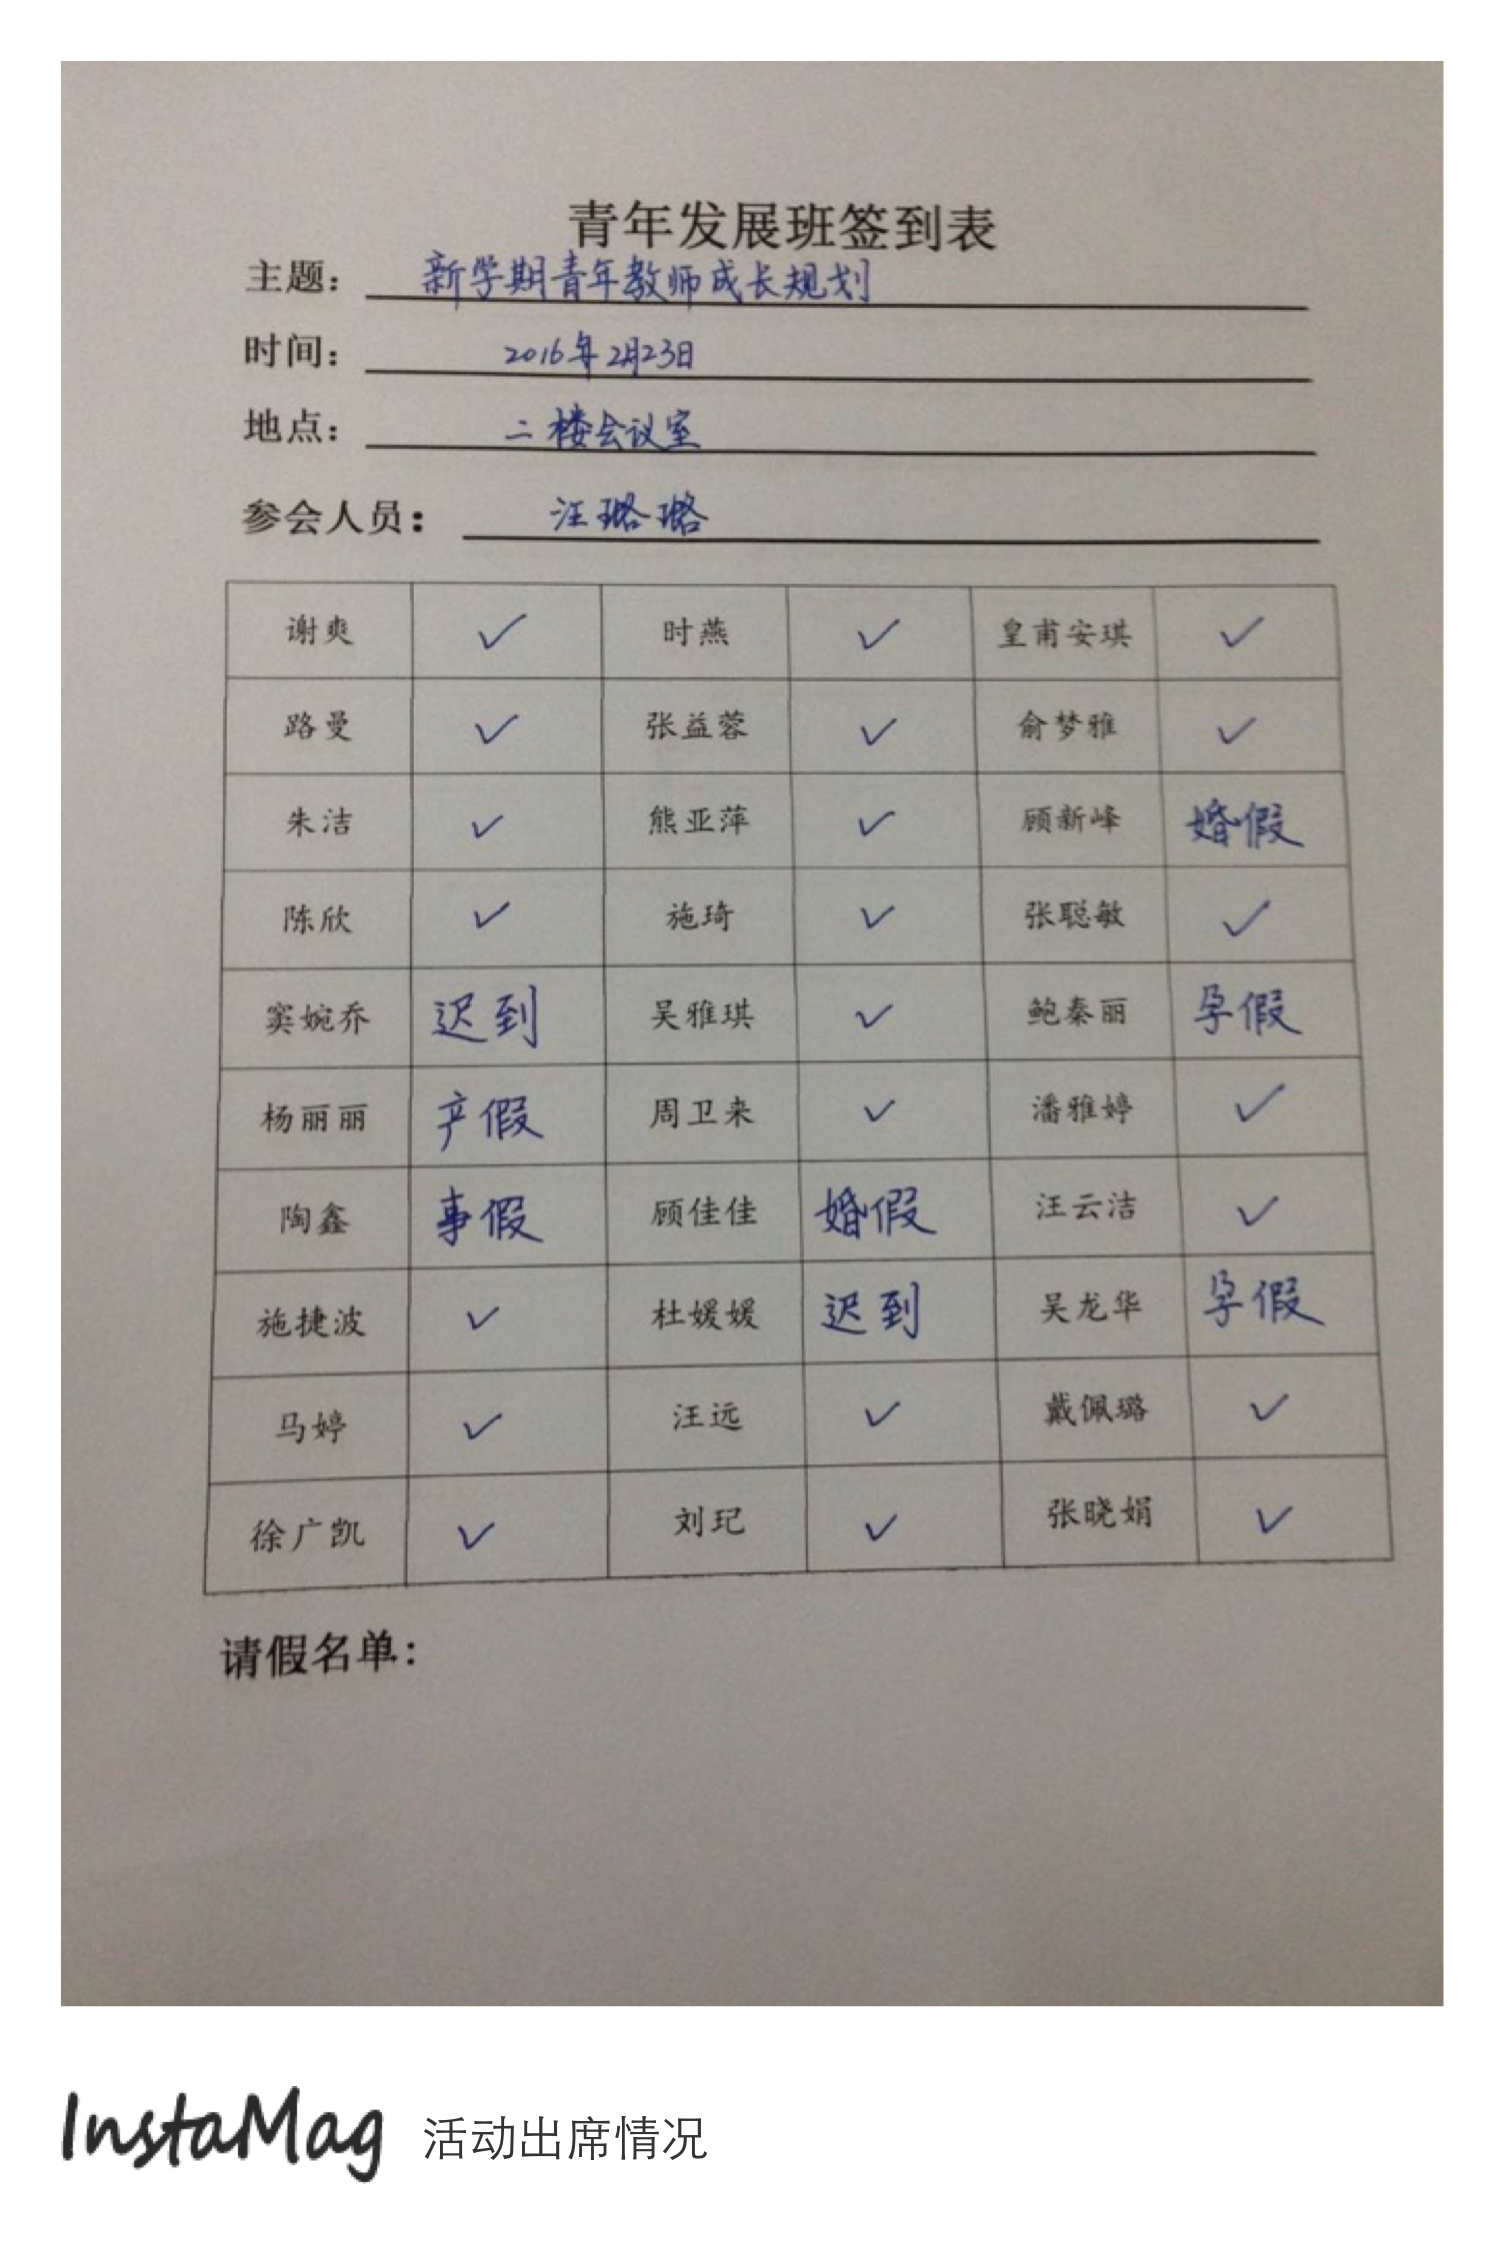 青年发展班签到表
主题： 新学期青年教师成长规划
时间： 2016年2月23日
地点： 二楼会议室
参会人员： 汪璐璐
谢爽 ✓ 时燕 ✓ 皇甫安琪 ✓
路曼 ✓ 张益蓉 ✓ 俞梦雅 ✓
朱洁 ✓ 熊亚萍 ✓ 顾新峰 婚假
陈欣 ✓ 施琦 ✓ 张聪敏 ✓
窦婉乔 迟到 吴雅琪 ✓ 鲍秦丽 孕假
杨丽丽 产假 周卫来 ✓ 潘雅婷 ✓
陶鑫 事假 顾佳佳 婚假 汪云洁 ✓
施捷波 ✓ 杜媛媛 迟到 吴龙华 孕假
马婷 ✓ 汪远 ✓ 戴佩璐 ✓
徐广凯 ✓ 刘玘 ✓ 张晓娟 ✓
请假名单：
InstaMag 活动出席情况